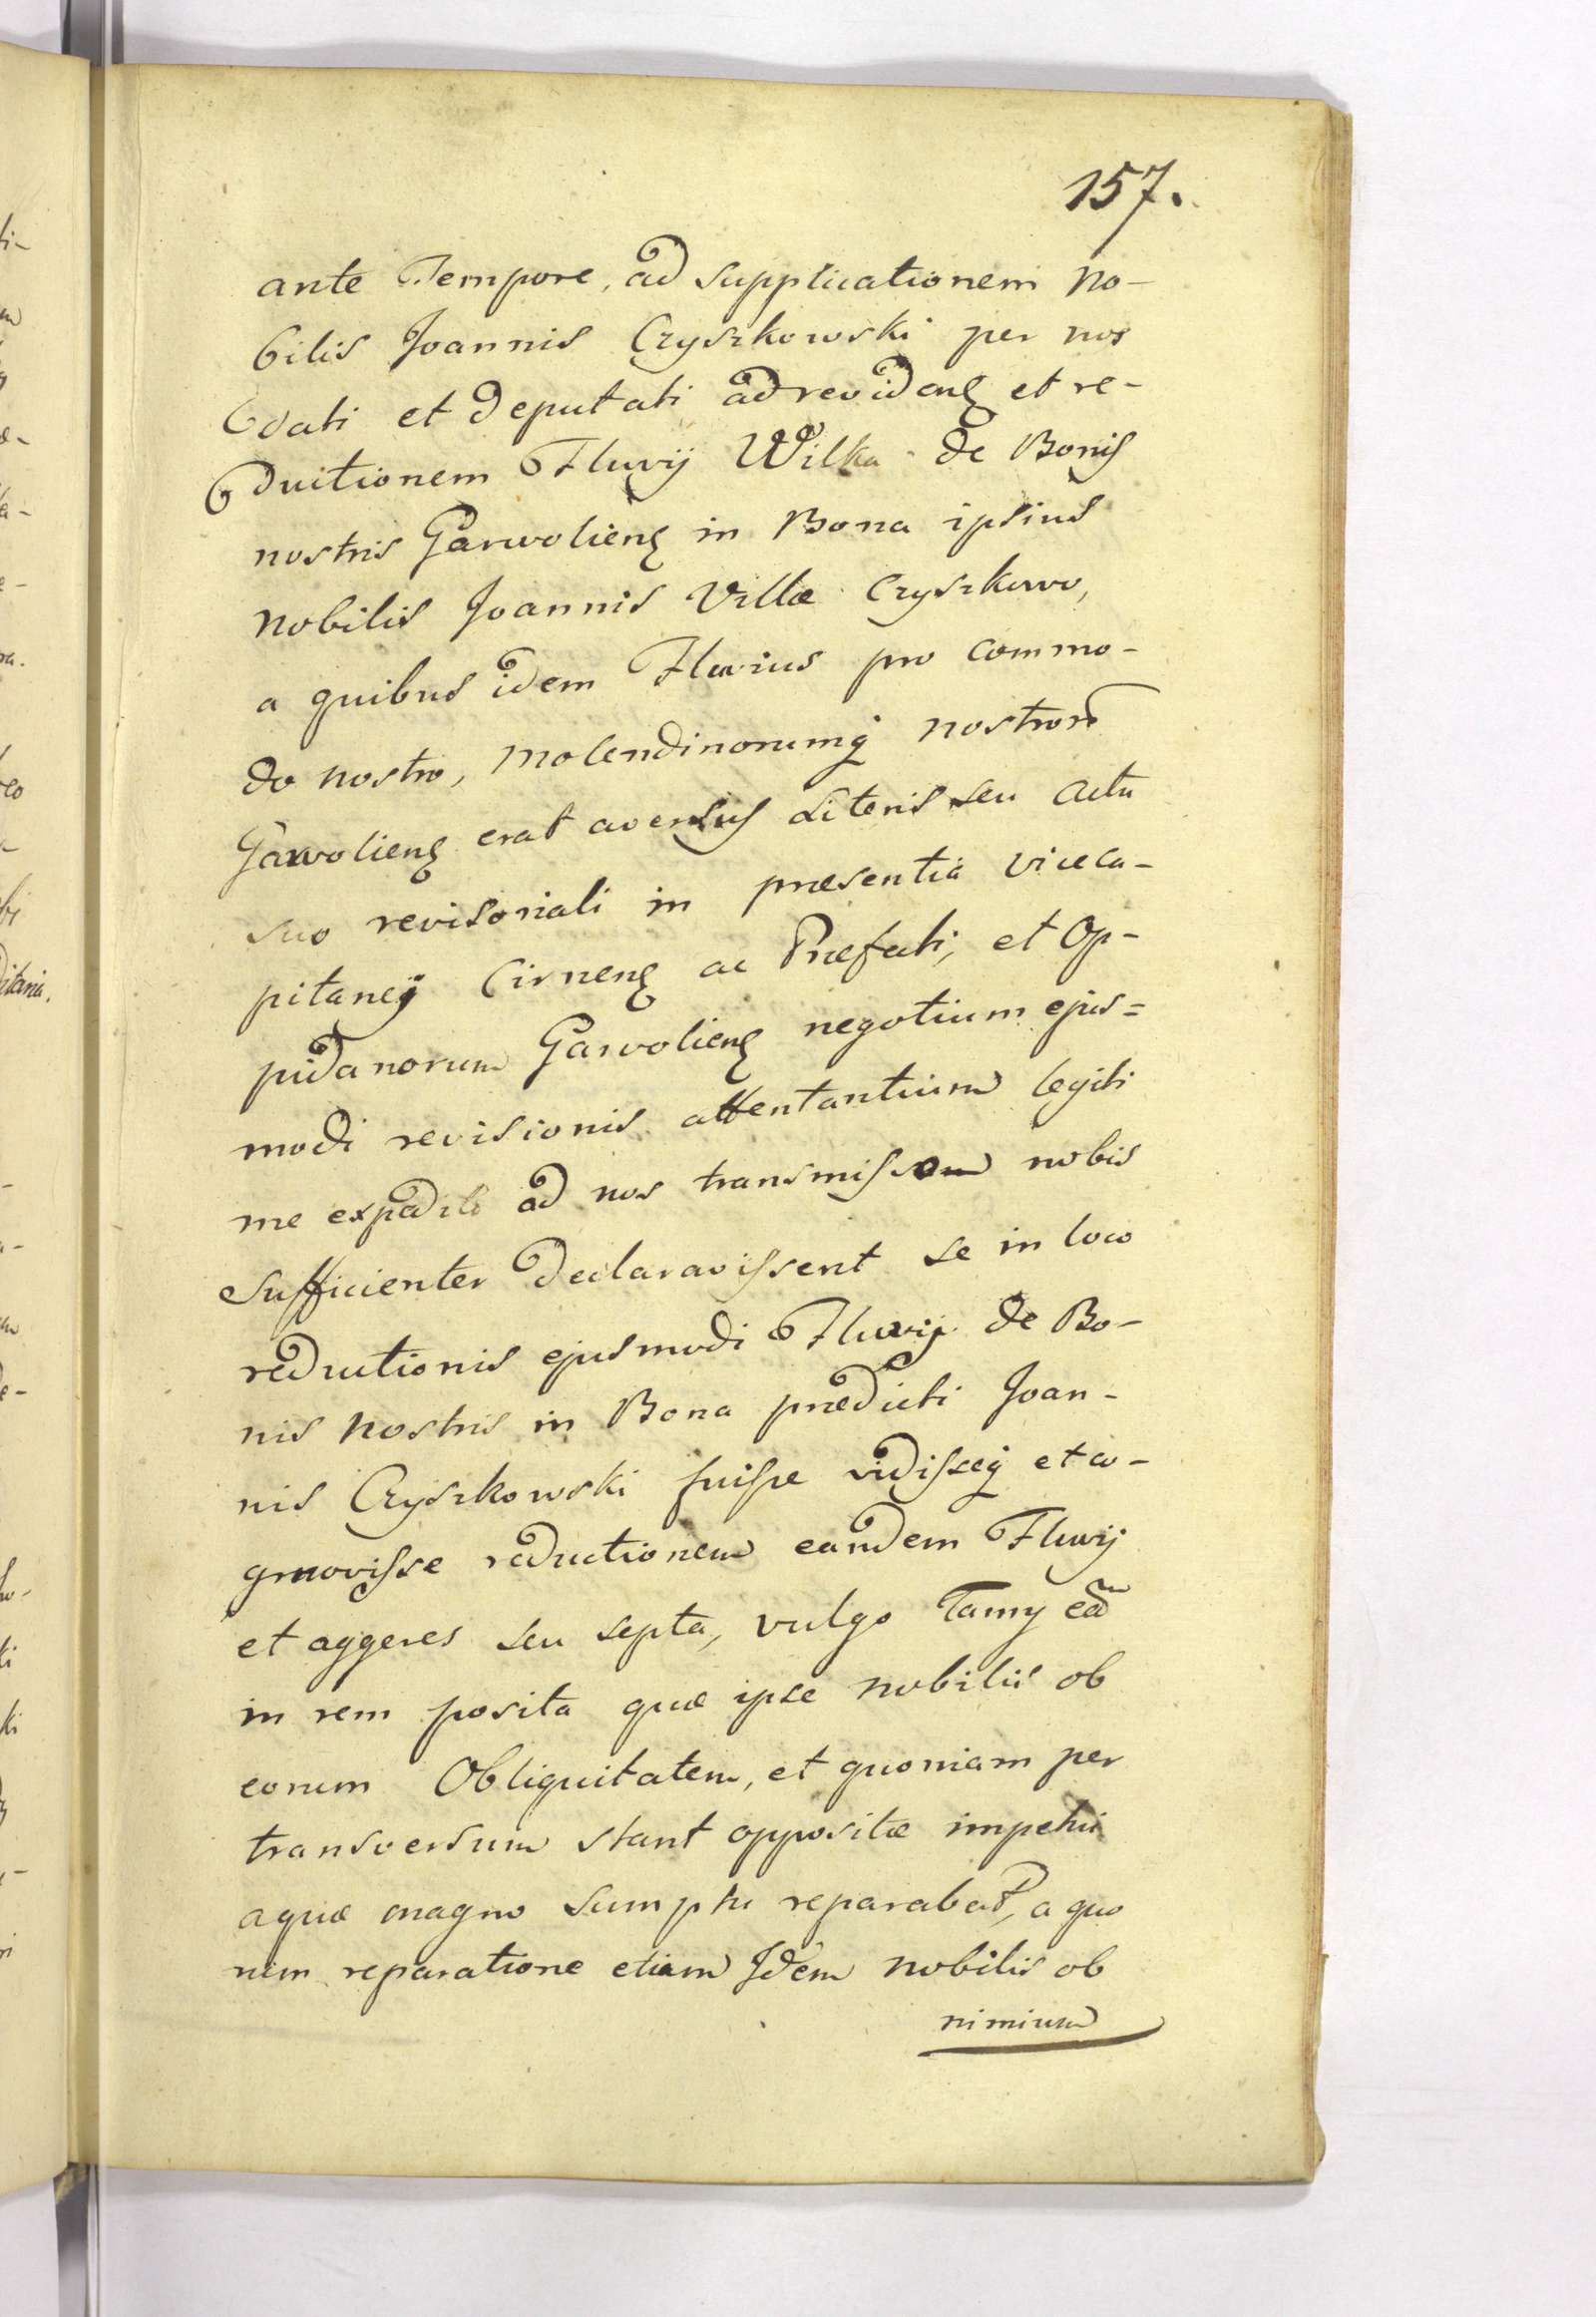 157.
ante Tempore, ad supplicationem no-
bilis Joannis Czyszkowski per nos
dati et deputati ad revidenς et re-
ductionem Fluvij Wilka de Bonis
nostris Garwolienς in Bona ipsius
nobilis Joannis Villæ Czyszkowo,
a quibus idem Fluvius pro commo-
do nostro, molendinorumq nostror
Garwolienς erat aversus Literis seu actu
suo revisoriali in præsentia viceca-
pitanej Cirnenς ac Præfecti, et Op-
pidanorum Garwolienς negotium ejus=
modi revisionis attentantium legiti
me ad nos transmisso nobis
sufficienter declaravissent se in loco
reductionis ejusmodi Fluvij de Bo-
nis nostris in Bona prædicti Joan-
nis Czyszkowski fuisse vidisseq et co-
gnovisse reductionem eandem Fluvij
et aggeres seu septa, vulgo Tamy eã
in rem posita quæ ipse nobilis ob
eorum Obliquitatem, et quoniam per
transversum stant oppositæ impetui
aquæ magno sumptu reparabat, a quo
rum reparatione etiam Idem nobilis ob
nimium